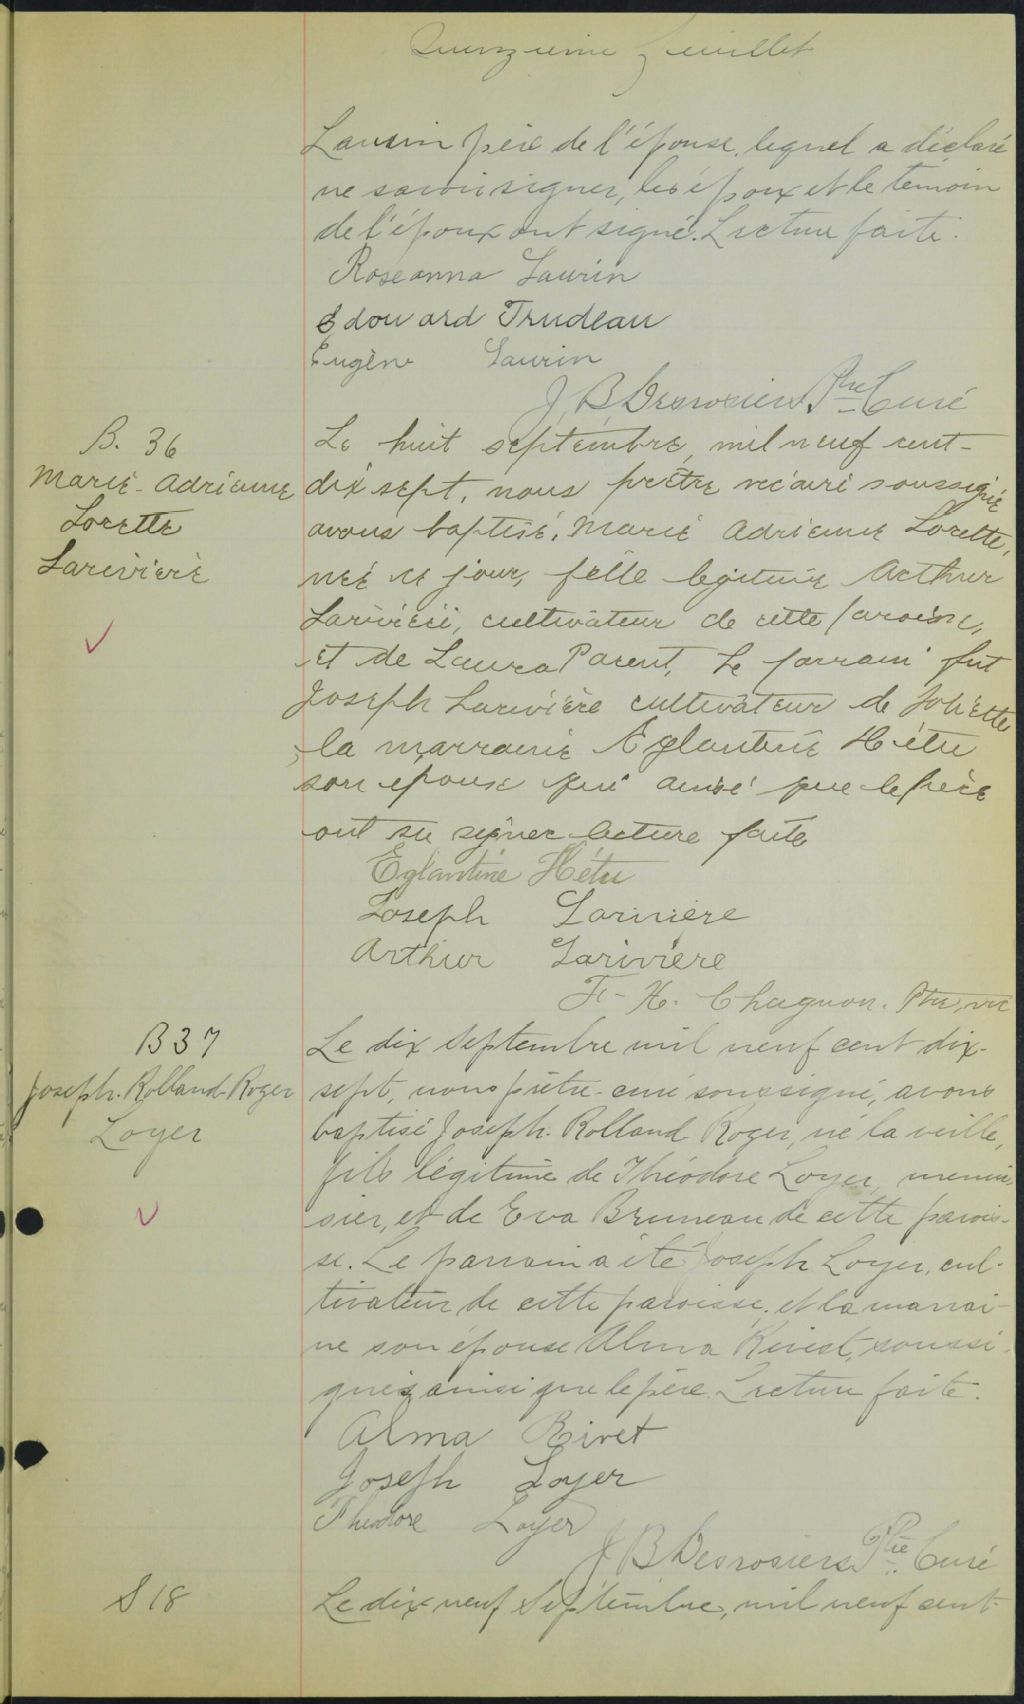 Quinzième feuillet
Laurin père de l'épouse, lequel a déclaré
ne savoir signer, les époux et le témoin
de l'époux ont signé. Lecture faite.
Roseanna Laurin
Edouard Trudeau
Eugène Laurin
J. B. Desrosiers Ptre Curé
B. 36
Marie-Adrienne
Lorette
Larivière
Le huit septembre, mil neuf cent-
dix sept, nous prêtre vicaire soussigné
avons baptisé, Marie Adrienne Lorette,
née ce jour, fille légitime Arthur
Larivière, cultivateur de cette paroisse,
et de Laura Parent, Le parrain fut
Joseph Larivière cultivateur de Joliette
la marraine Eglantine Hétu
son épouse qui ainsi que le père
ont su signer lecture faite
Eglantine Hétu
Joseph Larivière
Arthur Larivière
F-X. Chagnon. Ptre, vic
B 37
Joseph-Rolland-Roger
Loyer
Le dix Septembre mil neuf cent dix-
sept, nous prêtre-curé soussigné, avons
baptisé Joseph-Rolland Roger, né la veille,
fils légitime de Théodore Loyer, menui-
sier, et de Eva Bruneau de cette parois-
se. Le parrain a été Joseph Loyer, cul-
tivateur de cette paroisse, et la marrai-
ne son épouse Alma Rivest, soussi-
gnés ainsi que le père. Lecture faite.
Alma Rivet
Joseph Loyer
Theodore Loyer
J B Desrosiers Ptre Curé
S 18
Le dix-neuf Septembre, mil neuf cent-